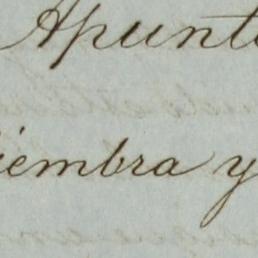 Apunt
iembra y